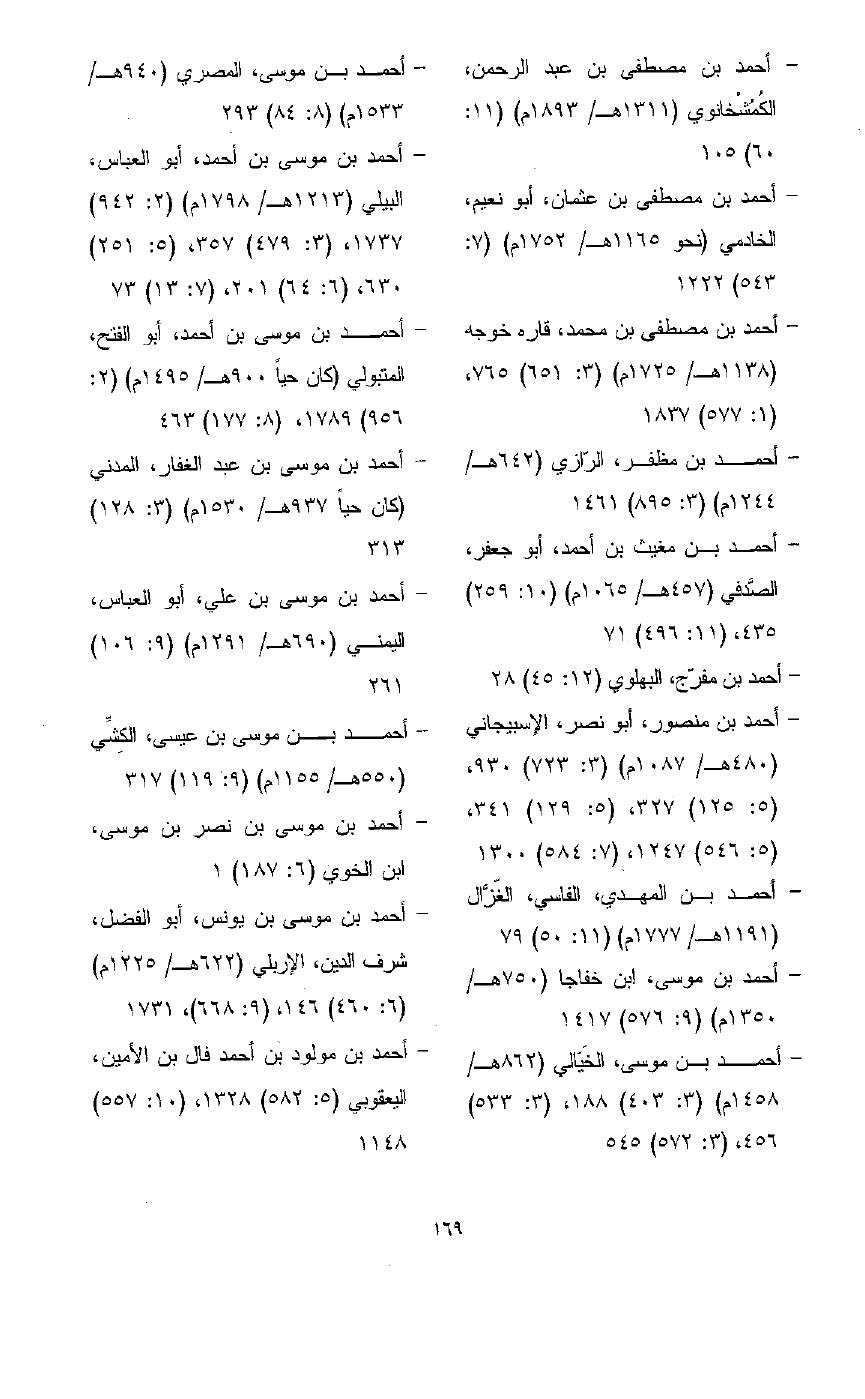 - أحمد بن مصطفى بن عبد الرحمن،
الكُمُشْخانوي (١٣١١هـ/ ١٨٩٣م) (١١:
٦٠) ١٠٥
- أحمد بن مصطفى بن عثمان، أبو نعيم،
الخادمي (نحو ١١٦٥هـ/ ١٧٥٢م) (٧:
٥٤٣) ١٢٢٢
- أحمد بن مصطفى بن محمد، قاره خوجه
(١١٣٨هـ/ ١٧٢٥م) (٣: ٦٥١) ٧٦٥،
(١: ٥٧٧) ١٨٣٧
- أحمد بن مظفر، الرّازي (٦٤٢هـ/
١٢٤٤م) (٣: ٨٩٥) ١٤٦١
- أحمد بن مغيث بن أحمد، أبو جعفر،
الصَّدفي (٤٥٧هـ/ ١٠٦٥م) (١٠: ٢٥٩)
٤٣٥، (١١: ٤٩٦) ٧١
- أحمد بن مفرّج، البهلوي (١٢: ٤٥) ٢٨
- أحمد بن منصور، أبو نصر، الإسبيجاني
(٤٨٠هـ/ ١٠٨٧م) (٣: ٧٢٣) ٩٣٠،
(٥: ١٢٥) ٣٢٧، (٥: ١٢٩) ٣٤١،
(٥: ٥٤٦) ١٢٤٧، (٧: ٥٨٤) ١٣٠٠
- أحمد بن المهدي، الفاسي، الغَزَّال
(١١٩١هـ/ ١٧٧٧م) (١١: ٥٠) ٧٩
- أحمد بن موسى، ابن خفاجا (٧٥٠هـ/
١٣٥٠م) (٩: ٥٧٦) ١٤١٧
- أحمد بن موسى، الخَيَالي (٨٦٢هـ/
١٤٥٨م) (٣: ٤٠٣) ١٨٨، (٣: ٥٣٣)
٤٥٦، (٣: ٥٧٢) ٥٤٥
- أحمد بن موسى، المصري (٩٤٠هـ/
١٥٣٣م) (٨: ٨٤) ٢٩٣
- أحمد بن موسى بن أحمد، أبو العباس،
البيلي (١٢١٣هـ/ ١٧٩٨م) (٢: ٩٤٢)
١٧٣٧، (٣: ٤٧٩) ٣٥٧، (٥: ٢٥١)
٦٣٠، (٦: ٦٤) ٢٠١، (٧: ١٣) ٧٣
- أحمد بن موسى بن أحمد، أبو الفتح،
المتبولي (كان حياً ٩٠٠هـ/ ١٤٩٥م) (٢:
٩٥٦) ١٧٨٩، (٨: ١٧٧) ٤٦٣
- أحمد بن موسى بن عبد الغفار، المدني
(كان حياً ٩٣٧هـ/ ١٥٣٠م) (٣: ١٢٨)
٣١٣
- أحمد بن موسى بن علي، أبو العباس،
اليمني (٦٩٠هـ/ ١٢٩١م) (٩: ١٠٦)
٢٦١
- أحمد بن موسى بن عيسى، الكشِّي
(٥٥٠هـ/ ١١٥٥م) (٩: ١١٩) ٣١٧
- أحمد بن موسى بن نصر بن موسى،
ابن الخوي (٦: ١٨٧) ١
- أحمد بن موسى بن يونس، أبو الفضل،
شرف الدين، الإربلي (٦٢٢هـ/ ١٢٢٥م)
(٦: ٤٦٠) ١٤٦، (٩: ٦٦٨)، ١٧٣١
- أحمد بن مولود بن أحمد فال بن الأمين،
اليعقوبي (٥: ٥٨٢) ١٣٢٨، (١٠: ٥٥٧)
١١٤٨
١٦٩